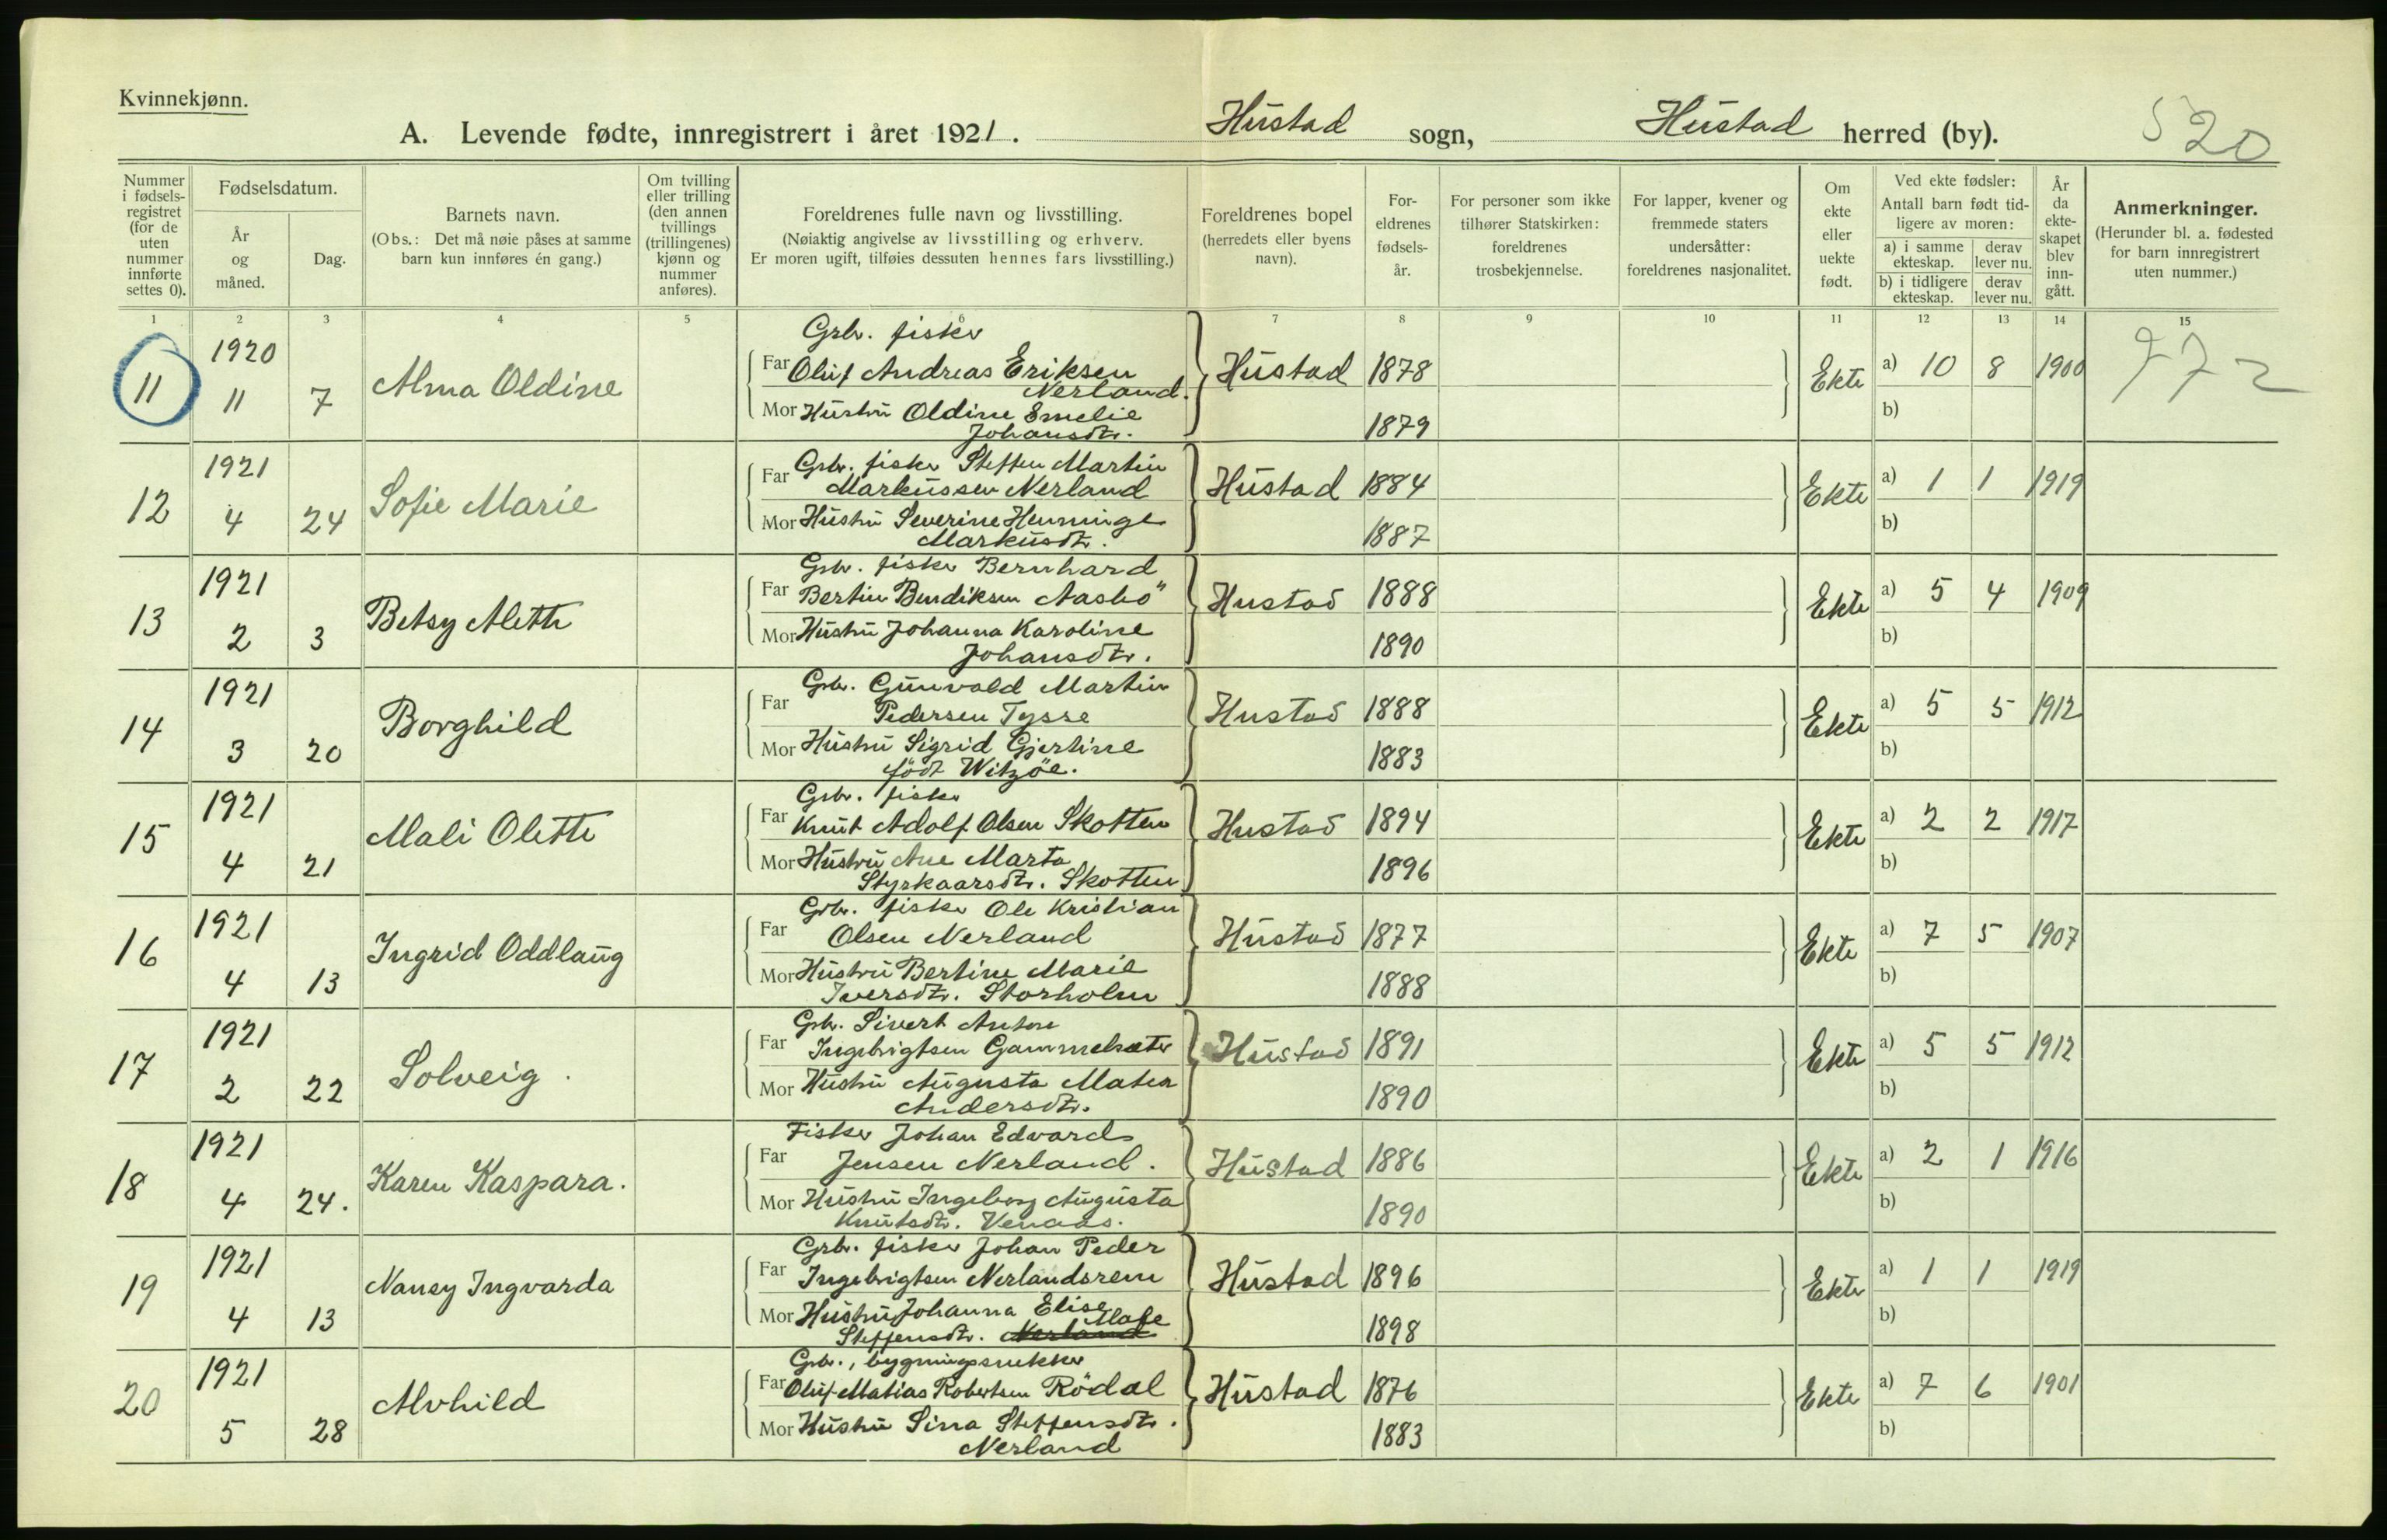 Kvinnekjønn.
A. Levende fødte, innregistrert i året 1921. Hustad sogn, Hustad herred (by). 520
Nummer i fødselsregistret (for de uten nummer innførte settes 0).
Fødselsdatum.
År og måned.
Dag.
Barnets navn.
(Obs.: Det må nøie påses at samme barn kun innføres én gang.)
Om tvilling eller trilling (den annen tvillings (trillingenes) kjønn og nummer anføres).
Foreldrenes fulle navn og livsstilling.
(Nøiaktig angivelse av livsstilling og erhverv.
Er moren ugift, tilføies dessuten hennes fars livsstilling.)
Foreldrenes bopel (herredets eller byens navn).
Foreldrenes fødselsår.
For personer som ikke tilhører Statskirken: foreldrenes trosbekjennelse.
For lapper, kvener og fremmede staters undersåtter: foreldrenes nasjonalitet.
Om ekte eller uekte født.
Ved ekte fødsler: Antall barn født tidligere av moren:
a) i samme ekteskap. derav lever nu.
b) i tidligere ekteskap. derav lever nu.
År da ekteskapet blev inngått.
Anmerkninger.
(Herunder bl. a. fødested for barn innregistrert uten nummer.)
1 2 3 4 5 6 7 8 9 10 11 12 13 14 15
11 1920 11 7 Alma Oldine
Grb. fisker
Far Oluf Andreas Eriksen Nerland.
Mor Hustru Oldine Emelie Johansdtr.
Hustad 1878 1879 Ekte a) 10 8 1900 b) 772
12 1921 4 24 Sofie Marie
Far Grb. fisker Steffen Martin Markussen Nerland
Mor Hustru Severine Henninge Markusdtr.
Hustad 1884 1887 Ekte a) 1 1 1919 b)
13 1921 2 3 Betsy Alette
Grb. fisker Bernhard
Far Bertin Bendiksen
Mor Hustru Johanna Karoline Johansdtr.
Hustad 1888 1890 Ekte a) 5 4 1909 b)
14 1921 3 20 Borghild
Far Grb. Gunvald Martin Pedersen Tysse
Mor Hustru Sigrid Gjertine født Witzöe.
Hustad 1888 1883 Ekte a) 5 5 1912 b)
15 1921 4 21 Mali Olette
Grb. fisker
Far Knut Adolf Olsen Skotten
Mor Hustru Ane Marta Styrkaarsdtr. Skotten
Hustad 1894 1896 Ekte a) 2 2 1917 b)
16 1921 4 13 Ingrid Oddlaug
Far Grb. fisker Ole Kristian Olsen Nerland
Mor Hustru Bertine Marie Iversdtr. Storholm
Hustad 1877 1888 Ekte a) 7 5 1907 b)
17 1921 2 22 Solveig.
Far Grb. Sivert Anton Ingebrigtsen Gammelsæter
Mor Hustru Augusta Matea Andersdtr.
Hustad 1891 1890 Ekte a) 5 5 1912 b)
18 1921 4 24. Karen Kaspara.
Far Fisker Johan Edvard Jensen Nerland.
Mor Hustru Ingeborg Augusta Knutsdtr. Venaas.
Hustad 1886 1890 Ekte a) 2 1 1916 b)
19 1921 4 13 Nancy Ingvarda
Far Grb. fisker Johan Peder Ingebrigtsen Nerlandsrem
Mor Hustru Johanna Elise Steffensdtr. Nerland
Hustad 1896 1898 Ekte a) 1 1 1919 b)
20 1921 5 28 Alvhild
Grb., bygningssnekker
Far Oluf Matias Robertsen Rödal
Mor Hustru Sina Steffensdtr. Nerland
Hustad 1876 1883 Ekte a) 7 6 1901 b)